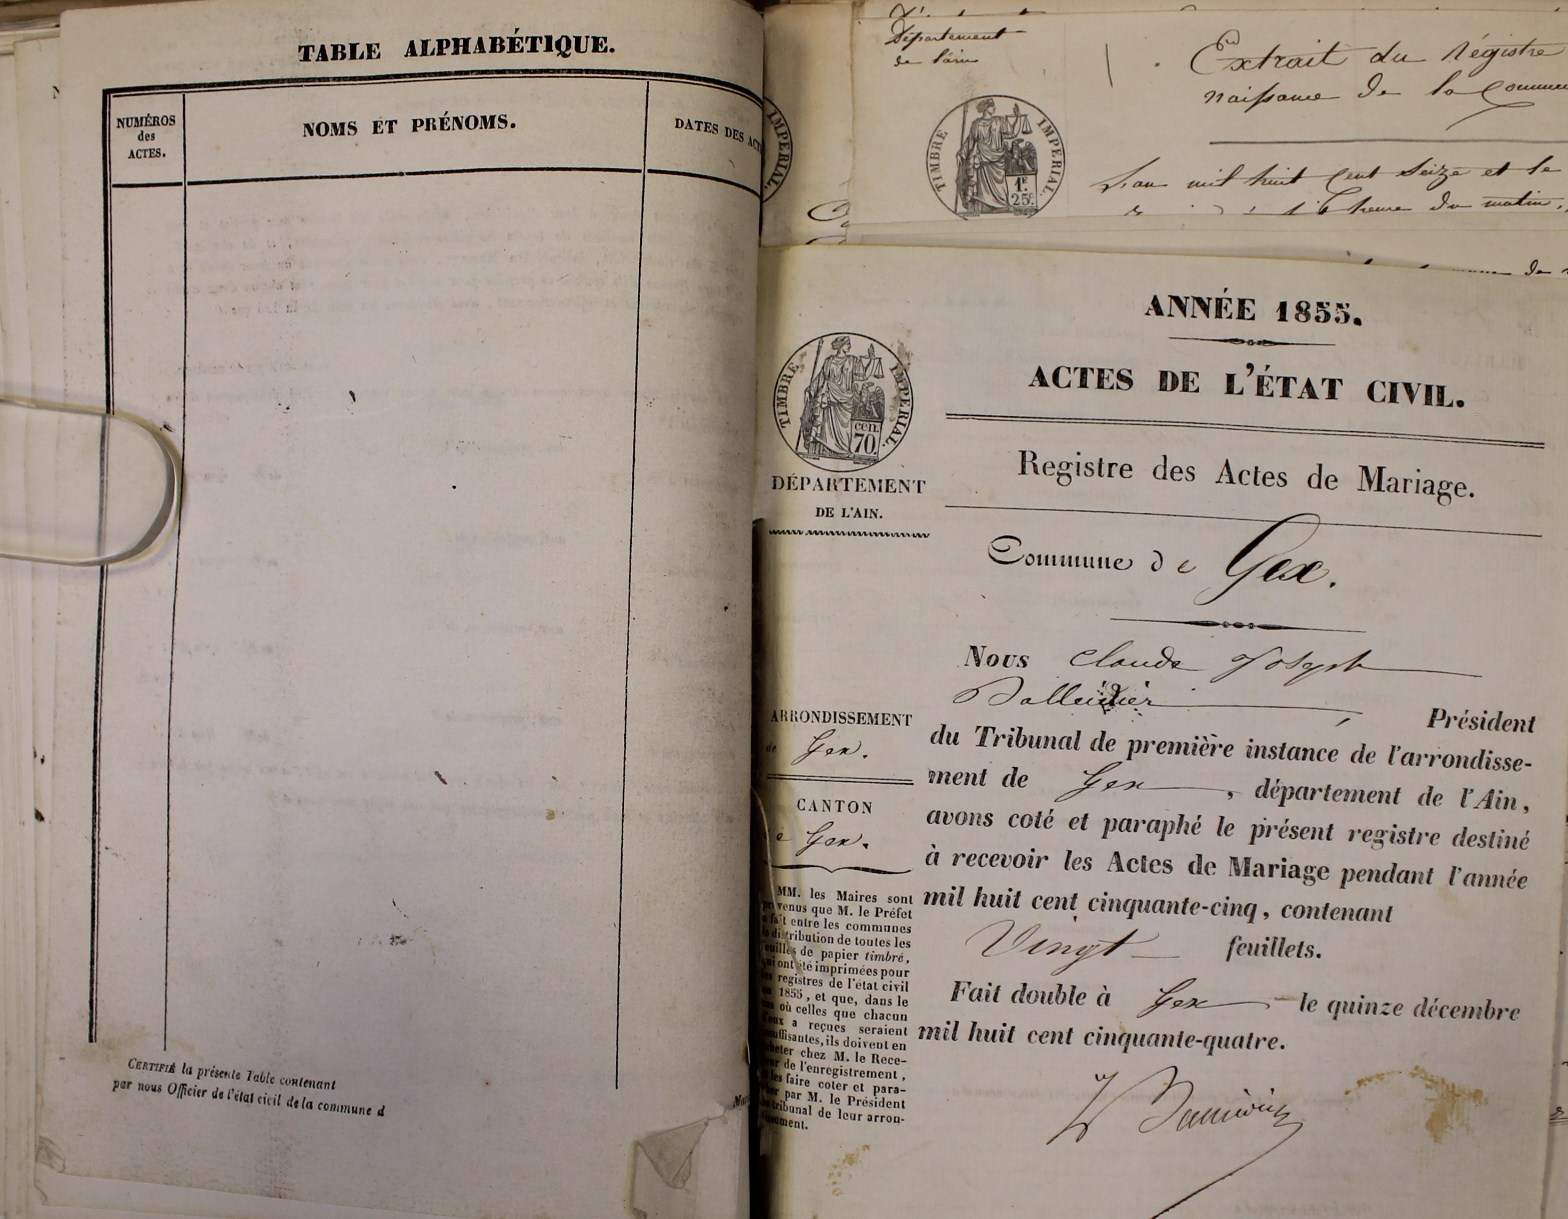 TABLE ALPHABÉTIQUE.
NUMÉROS
des
ACTES.
NOMS ET PRÉNOMS.
DATES DES ACT
CERTIFIÉ la présente Table contenant
par nous Officier de l'état civil de la commune d
IMPERIAL.
Département
de l'ain
TIMBRE IMPERIAL.
1F
25C
Extrait du Régistre
naissance de la Commu
L'an mil huit Cent Seize et le
heure du matin,
ANNÉE 1855.
ACTES DE L'ÉTAT CIVIL.
TIMBRE IMPERIAL.
CEN.
70
DÉPARTEMENT
DE L'AIN.
Registre des Actes de Mariage.
Commune de Gex.
ARRONDISSEMENT
de Gex.
CANTON
e Gex.
MM. les Maires sont
venus que M. le Préfet
fait entre les communes
distribution de toutes les
feuilles de papier timbré,
qui ont été imprimées pour
registres de l'état civil
1855, et que, dans le
où celles que chacun
d'eux a reçues seraient
suffisantes, ils doivent en
acheter chez M. le Rece-
de l'enregistrement,
les faire coter et para-
par M. le Président
tribunal de leur arron-
Nous Claude Joseph
Président
du Tribunal de première instance de l'arrondisse-
ment de Gex, département de l'Ain,
avons coté et paraphé le présent registre destiné
à recevoir les Actes de Mariage pendant l'année
mil huit cent cinquante-cinq, contenant
Vingt feuillets.
Fait double à Gex le quinze décembre
mil huit cent cinquante-quatre.